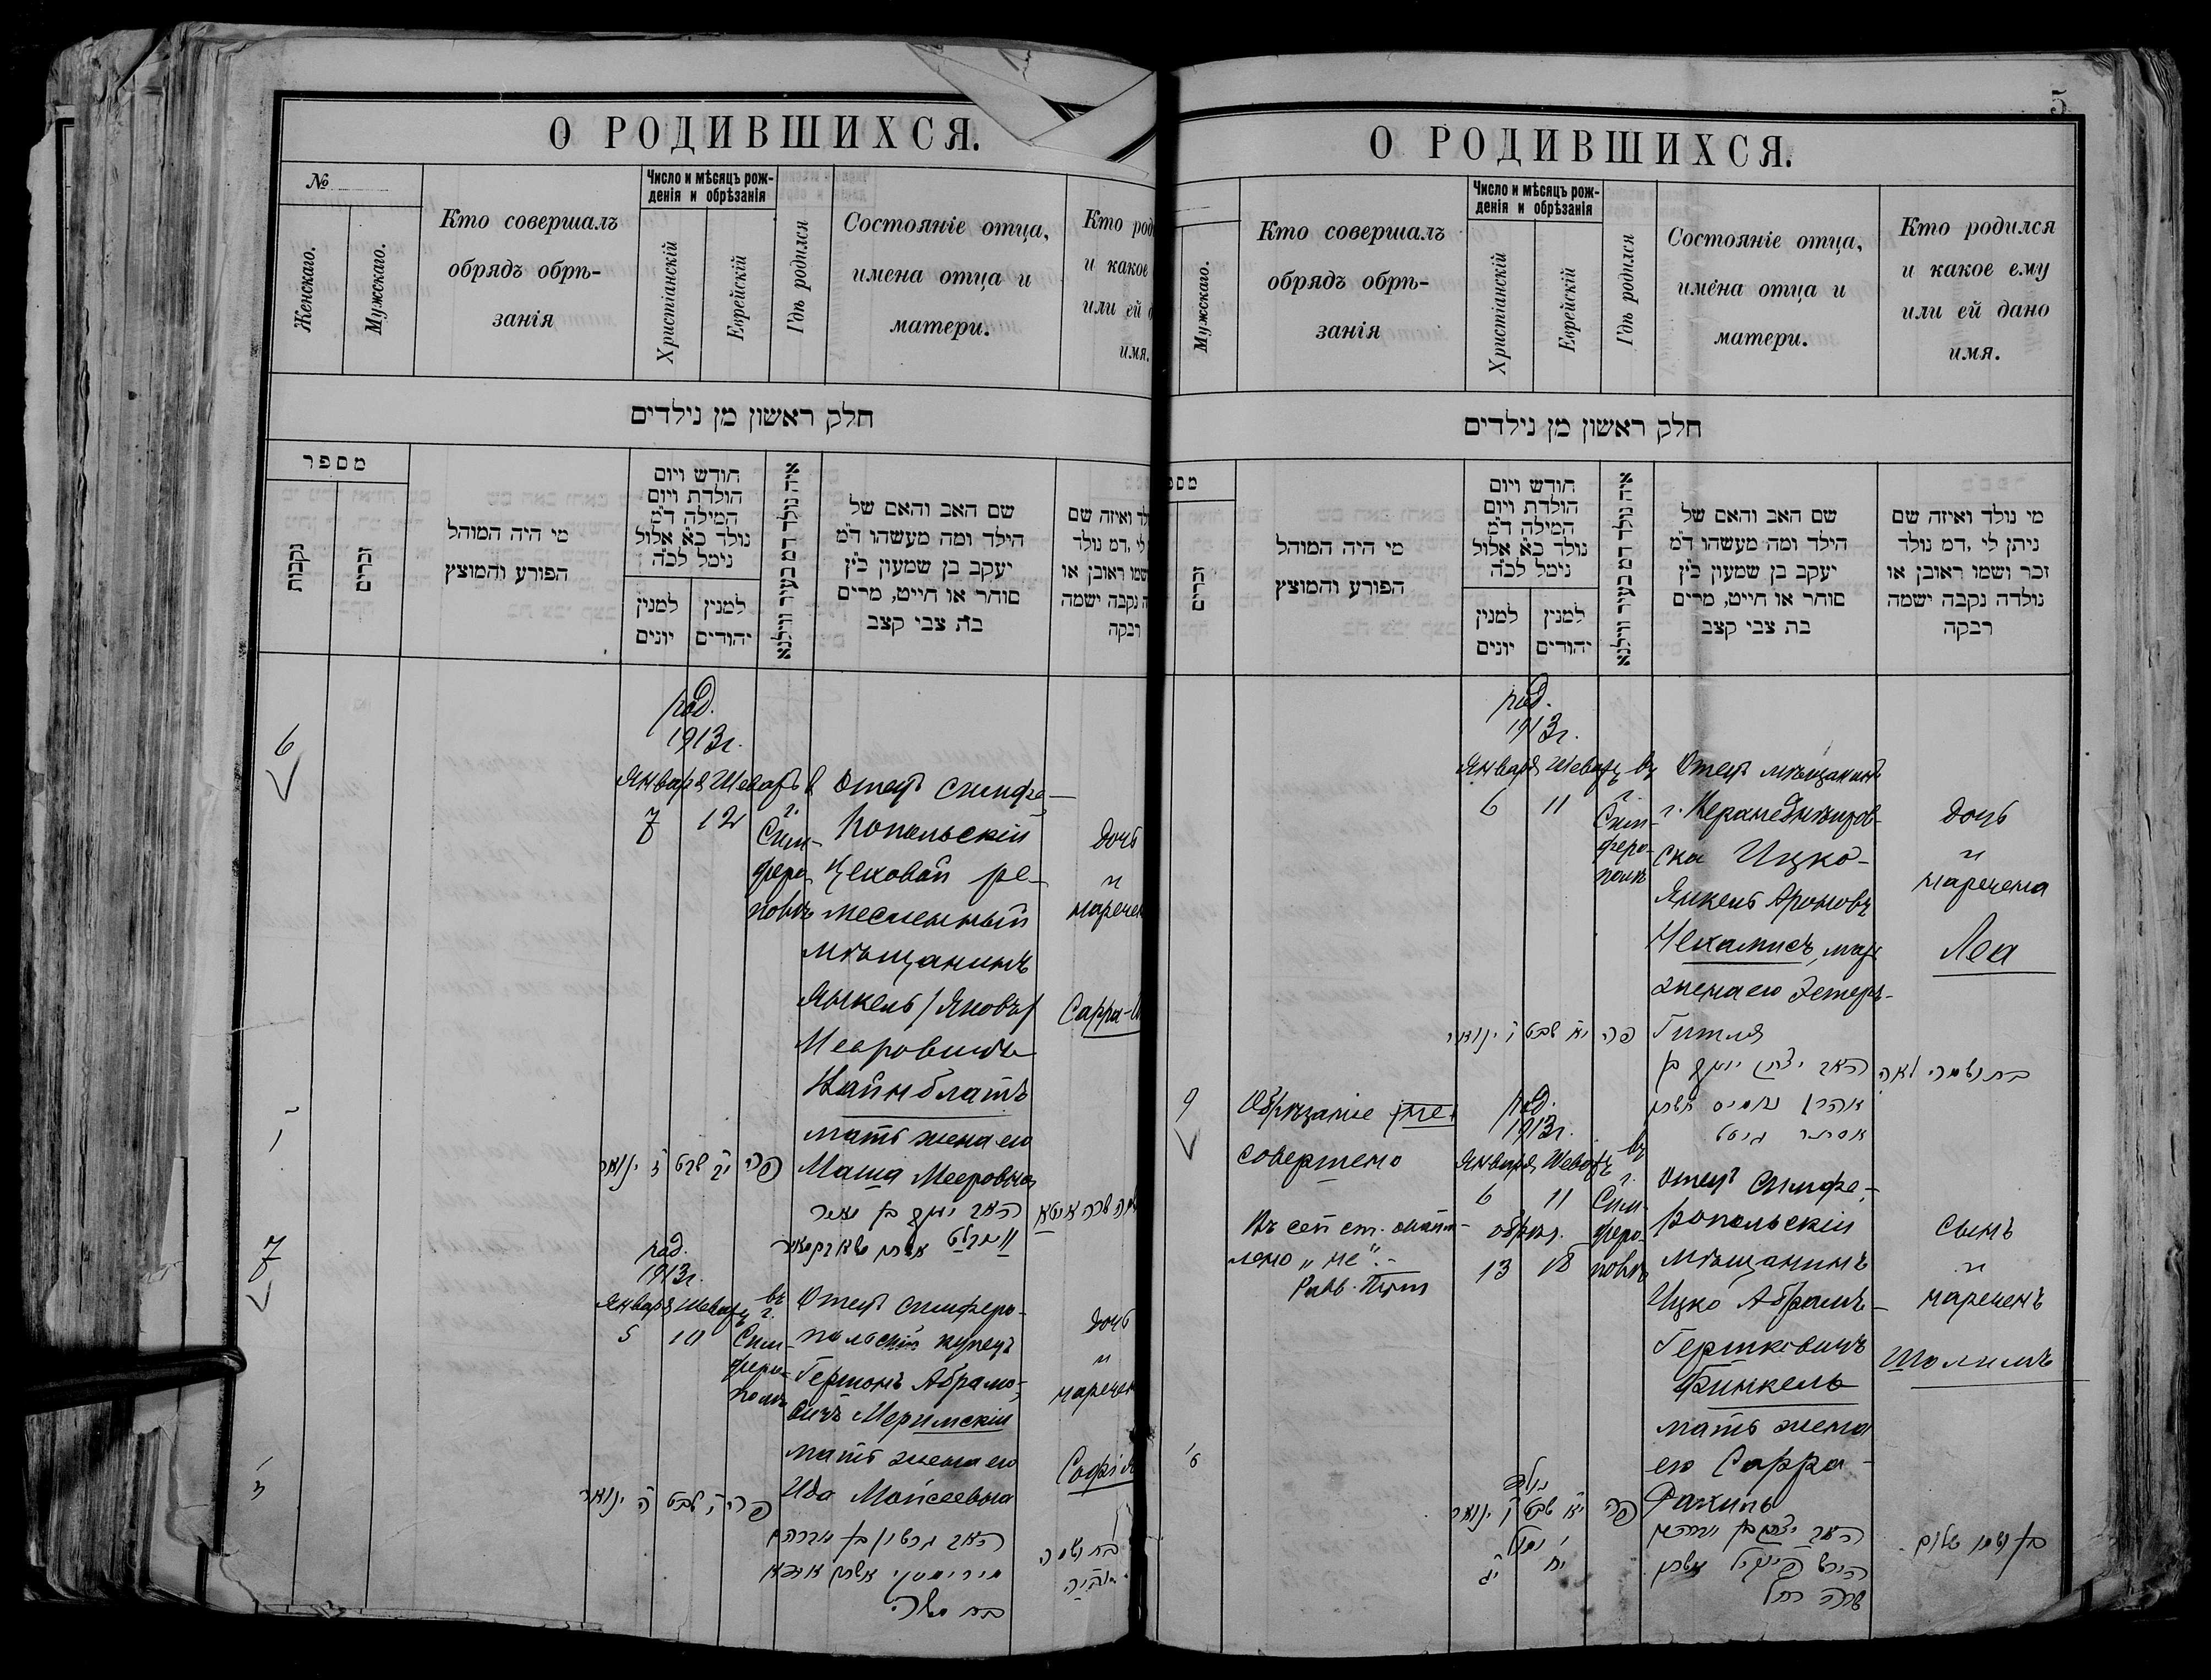 О РОДИВШИХСЯ.
№
Женскаго.
Мужскаго.
Кто совершалъ
обрядъ обрѣ-
занія
Число и мѣсяцъ рож-
денія и обрѣзанія
Христіанскій
Еврейскій
Гдѣ родился
Состояніе отца,
имена отца и
матери.
Кто род
и какое
или ей д
имя.
חלק ראשון מן נילדים
מספר
נקבות
זכרים
מי היה המוהל
הפורע והמוצץ
חודש ויום
הולדת ויום
המילה ד״מ
נולד כ״א אלול
נימל לכ״ה
למנין
יונים
למנין
יהודים
איה נולד דמ בעיר ווילנא
שם האב והאם של
הילד ומה מעשהו ד״מ
יעקב בן שמעון כ״ץ
סוחר או חייט, מרים
בת צבי קצב
לד ואיזה שם
לי, דמ נולד
שמו ראובן או
ה נקבה ישמה
רבקה
6
род.
1913г.
Января Шеватъ в
7 12
г.
Сим-
феро-
полѣ
Отецъ симфе-
ропольскій
цеховой ре-
месленный
мѣщанинъ
Янкель /Яковъ/
Мееровичъ
Вайнблатъ
мать жена его
Маша Мееровна
дочь
и
наречен
Сарра-
פה
י״ב שבט
ז׳ ינואר
האב יעקב בן מאיר
7
род.
1913г.
Января Шеватъ
5 10
въ
г.
Сим-
феро-
полѣ
Отецъ симферо-
польскій купецъ
Гершонъ Абрамо-
вичъ Меримскій
мать жена его
Ида Моисеевна
дочь
и
наречен
Софія
פה
י׳ שבט
ה׳ ינואר
האב גרשון בן אברהם
מירימסקי אשתו אידא
בת משה
בת ושמה
סופיה
5
О РОДИВШИХСЯ.
Мужскаго.
Кто совершалъ
обрядъ обрѣ-
занія
Число и мѣсяцъ рож-
денія и обрѣзанія
Христіанскій
Еврейскій
Гдѣ родился
Состояніе отца,
имена отца и
матери.
Кто родился
и какое ему
или ей дано
имя.
חלק ראשון מן נילדים
מספ
זכרים
מי היה המוהל
הפורע והמוצץ
חודש ויום
הולדת ויום
המילה ד״מ
נולד כ״א אלול
נימל לכ״ה
למנין
יונים
למנין
יהודים
איה נולד דמ בעיר ווילנא
שם האב והאם של
הילד ומה מעשהו ד״מ
יעקב בן שמעון כ״ץ
סוחר או חייט, מרים
בת צבי קצב
מי נולד ואיזה שם
ניתן לי, דמ נולד
זכר ושמו ראובן או
נולדה נקבה ישמה
רבקה
род.
1913г.
Января Шеватъ
6 11
въ
г.
Сим-
феро-
полѣ
Отецъ мѣщанинъ
ска Ицко-
Янкель Ароновъ
жена его Эстеръ-
Гитля
дочь
и
наречена
Леа
פה
י״א שבט
ו׳ ינואר
האב יצחק יעקב בן
אסתר גיטל
בת ושמה לאה
9
Обрѣзаніе не
совершено
род.
1913г.
Января Шеватъ
6 11
обрѣз.
13 18
въ
г.
Сим-
феро-
полѣ
Отецъ симфе-
ропольскій
мѣщанинъ
Ицко Абрамъ-
Гершковичъ
Финкель
мать жена
его Сарра-
Рахиль
сынъ
и
нареченъ
Шолимъ
פה
נולד
י״א שבט
ו׳ ינואר
נימול
י״ח
י״ג
האב יצחק בן אברהם
הירש פינקיל אשתו
שרה רחל
בן ושמו שלום